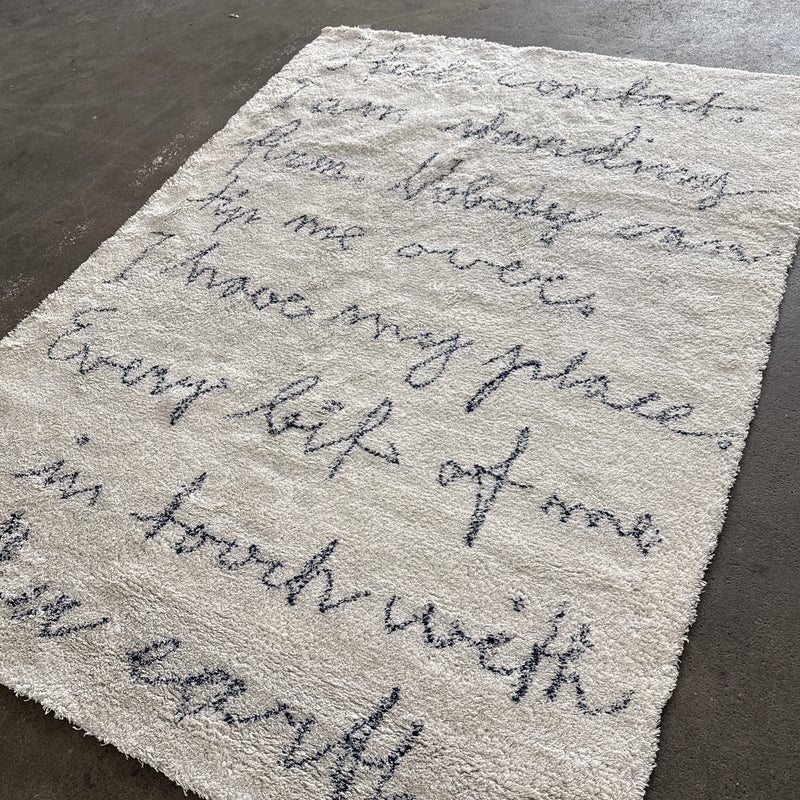 I feel contact.
I am standing
firm. Nobody can
tip me over.
I have my place.
Every bit of me
in touch with
earth